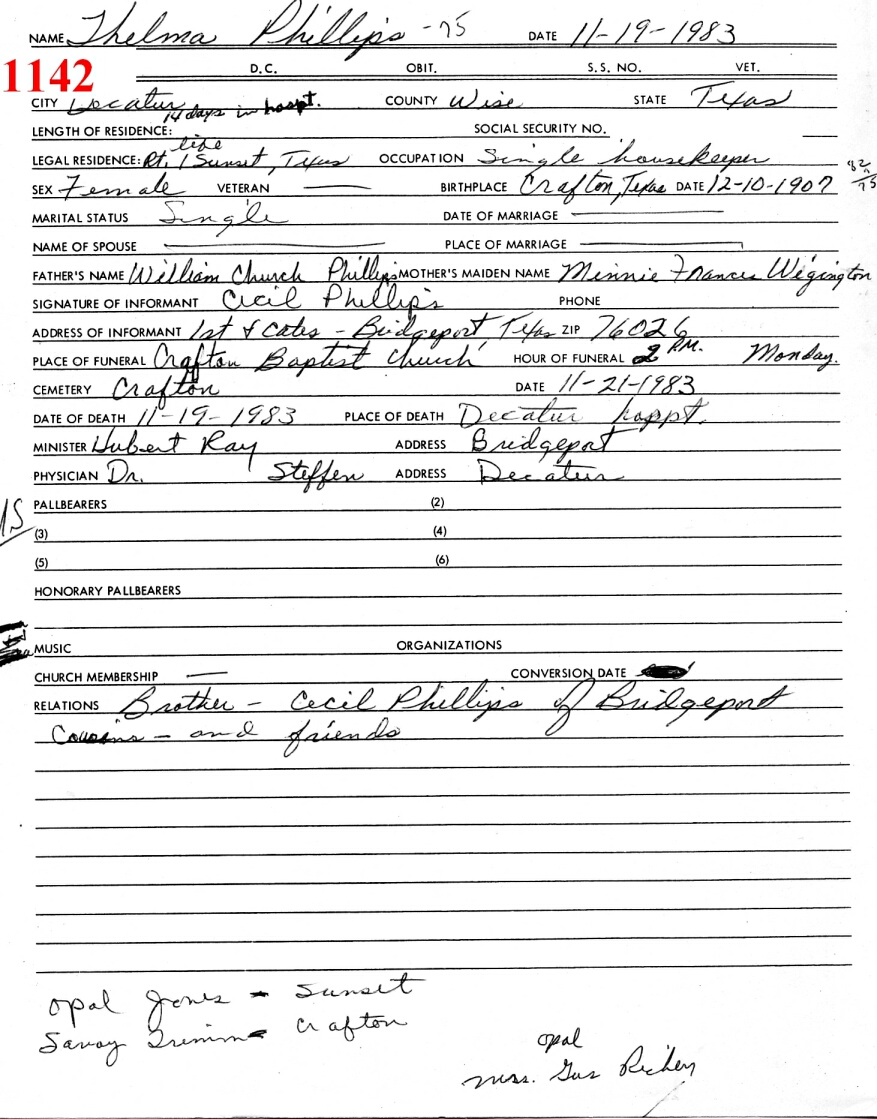 NAME Thelma Phillips - 75 DATE 11-19-1983
1142
D.C. OBIT. S.S. NO. VET.
CITY Decatur 14 days in hospt. COUNTY Wise STATE Texas
LENGTH OF RESIDENCE: life SOCIAL SECURITY NO.
LEGAL RESIDENCE: Rt. 1 Sunset, Texas OCCUPATION Single housekeeper
SEX Female VETERAN BIRTHPLACE Crafton, Texas DATE 12-10-1907 82 75
MARITAL STATUS Single DATE OF MARRIAGE
NAME OF SPOUSE PLACE OF MARRIAGE
FATHER'S NAME William Church Phillips MOTHER'S MAIDEN NAME Minnie Frances Wigington
SIGNATURE OF INFORMANT Cecil Phillips PHONE
ADDRESS OF INFORMANT 1st & Cates - Bridgeport, Texas ZIP 76026
PLACE OF FUNERAL Crafton Baptist Church HOUR OF FUNERAL 2 P.M. Monday.
CEMETERY Crafton DATE 11-21-1983
DATE OF DEATH 11-19-1983 PLACE OF DEATH Decatur hospt.
MINISTER Hubert Ray ADDRESS Bridgeport
PHYSICIAN Dr. Steffen ADDRESS Decatur
PALLBEARERS (2)
15
(3) (4)
(5) (6)
HONORARY PALLBEARERS
MUSIC ORGANIZATIONS
CHURCH MEMBERSHIP CONVERSION DATE
RELATIONS Brother - Cecil Phillips of Bridgeport
Cousins - and friends
Opal Jones - Sunset
Savoy - Crafton
Opal
Mrs. Gus Richey